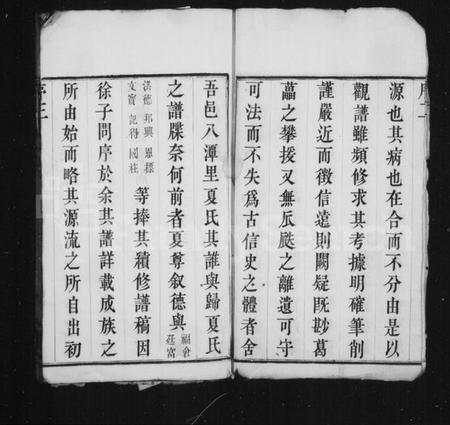 源也其病也在合而不分由是以
觀譜雖頻修求其考據明確筆削
謹嚴近而徵信遠則闕疑既尠葛
藟之攀援又無瓜瓞之離遺可守
可法而不失為古信史之體者舍
吾邑八潭里夏氏其誰與歸夏氏
之譜牒奈何前者夏尊叙德與福倉
莊富
洪德邦興恩標
文寶記得國柱等捧其續修譜稿因
徐子問序於余其譜詳載成族之
所由始而略其源流之所自出初
序三